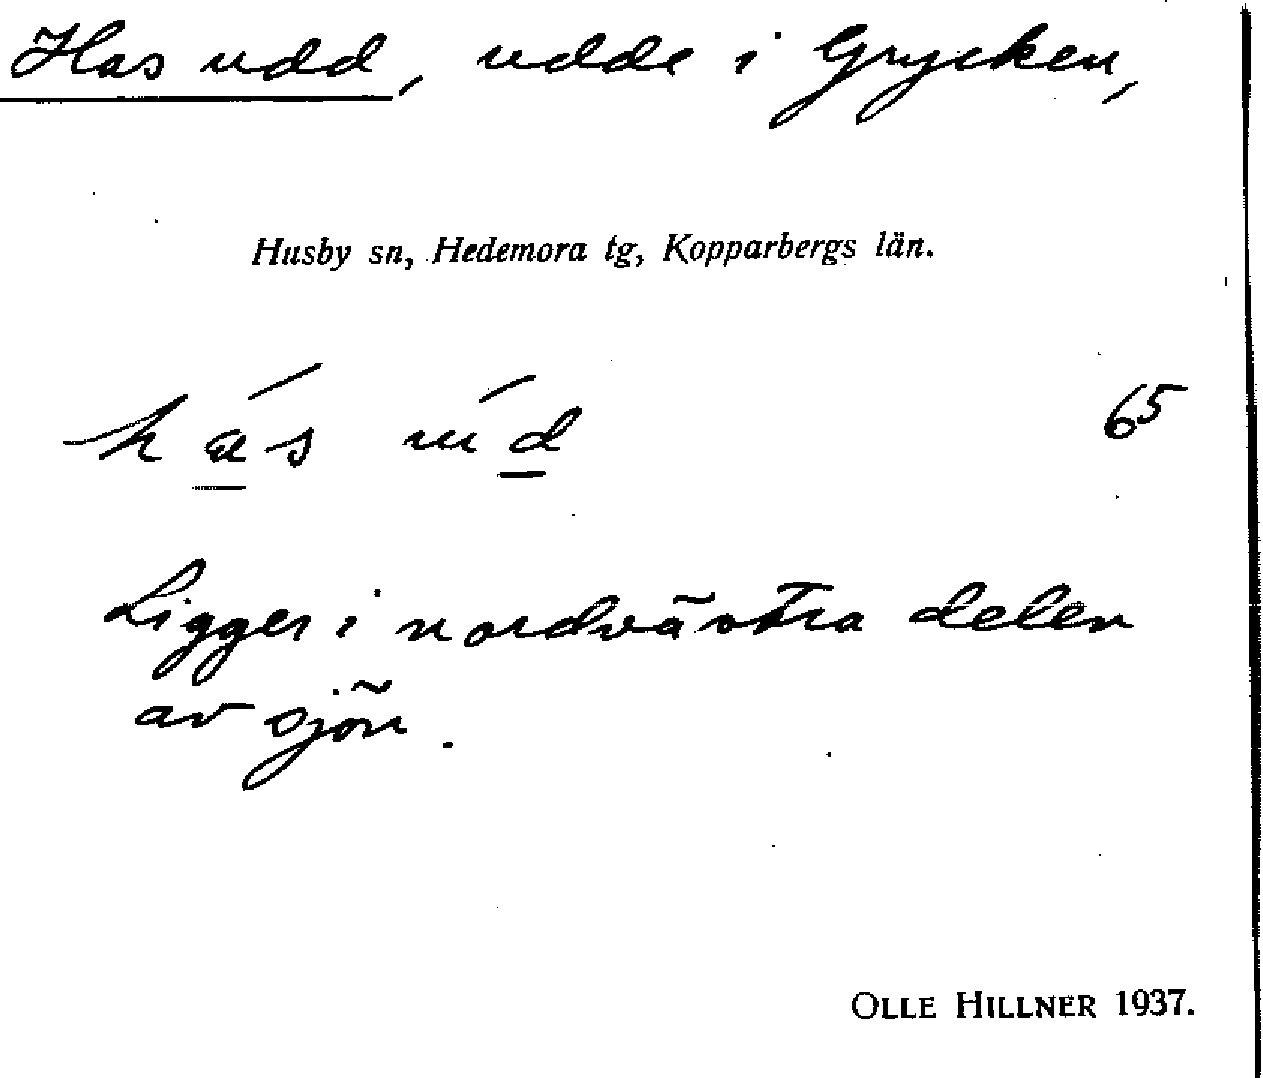 Has udd, udde i Grycken,
Husby sn, Hedemora tg, Kopparbergs län.
hás úd 65
Ligger i nordvästra delen
av sjön.
OLLE HILLNER 1937.